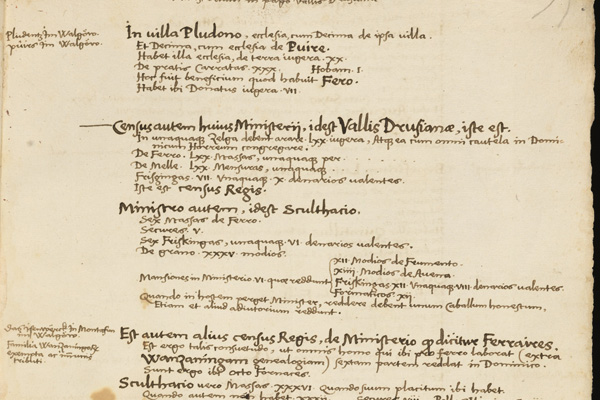 Pludentz Im Walgöw.
puirs im Walgöw.
In villa Pludono, ecclesia, cum Decima de ipsa villa.
Et Decima, cum ecclesia de Puire.
Habet illa ecclesia, de terra iugera .xx.
De pratis Carratas .xxx. Hobam .I.
Hoc fuit beneficium quod habuit Fero.
Habet ibi Donatus iugera .VII.
Census autem huius Ministerij, idest Vallis Drusianæ, iste est.
In unaquaque Zelga debent arare .lxx iugera, Atque ea cum omni cautela in Domi-
nicum Horreum congregare.
De Ferro .lxx. Massas, unaquaque per
De Melle .lxx. Mensuras, unaquaque
Frisgingas .VII. Unaquaque .x. denarios valentes.
Iste est census Regis.
Ministro autem, idest Sculthacio.
Sex Massas de Ferro.
Secures .V.
Sex Friskingas, unaquaque .VI. denarios valentes.
De grano .xxxv. modios.
Mansiones in Ministerio .VI. quæ reddunt
XII Modios de Frumento.
XIIIJ Modios de Avena.
Friskingas XII Unaquaque VIII denarios valentes.
Formaticos XII.
Quando in hostem perget Minister, reddere debent unum Caballum honestum,
Etiam et aliud adiutorium reddunt.
Im Walgöw.
Familia Wanzaningasc
exempta ac immunis
tributi
Est autem alius census Regis, de Ministerio qd dicitur Ferraires.
Est ergo talis consuetudo, ut omnis homo qui ibi pro ferro laborat (extra
Wanzaningam genealogiam) sextam partem reddat in Dominico.
Sunt ergo ibi octo Fornaces.
Sculthacio vero Massas .XXXVI. Quando suum placitum ibi habet.
Quando autem non habet .XXXII.